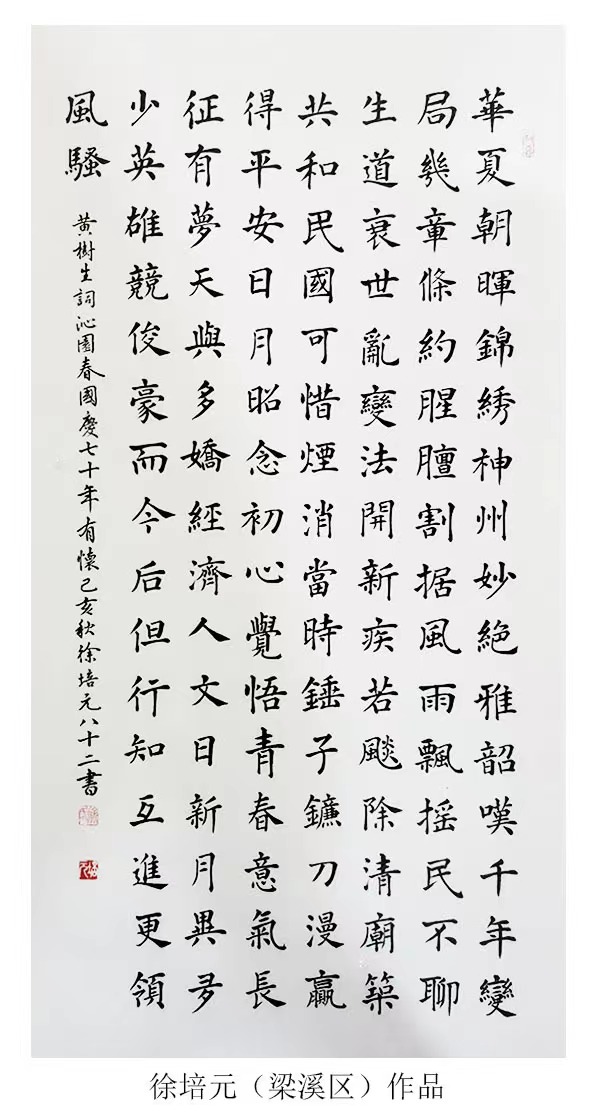 華夏朝暉錦綉神州妙絕雅韶嘆千年變
局幾章條約腥膻割据風雨飄搖民不聊
生道衰世亂變法開新疾若飈除清廟築
共和民國可惜煙消當時錘子鐮刀漫贏
得平安日月昭念初心覺悟青春意氣長
征有夢天與多嬌經濟人文日新月異多
少英雄競俊豪而今后但行知互進更領
風騷
黃樹生詞沁園春國慶七十年有懷己亥秋徐培元八十二書
徐培元（梁溪区）作品